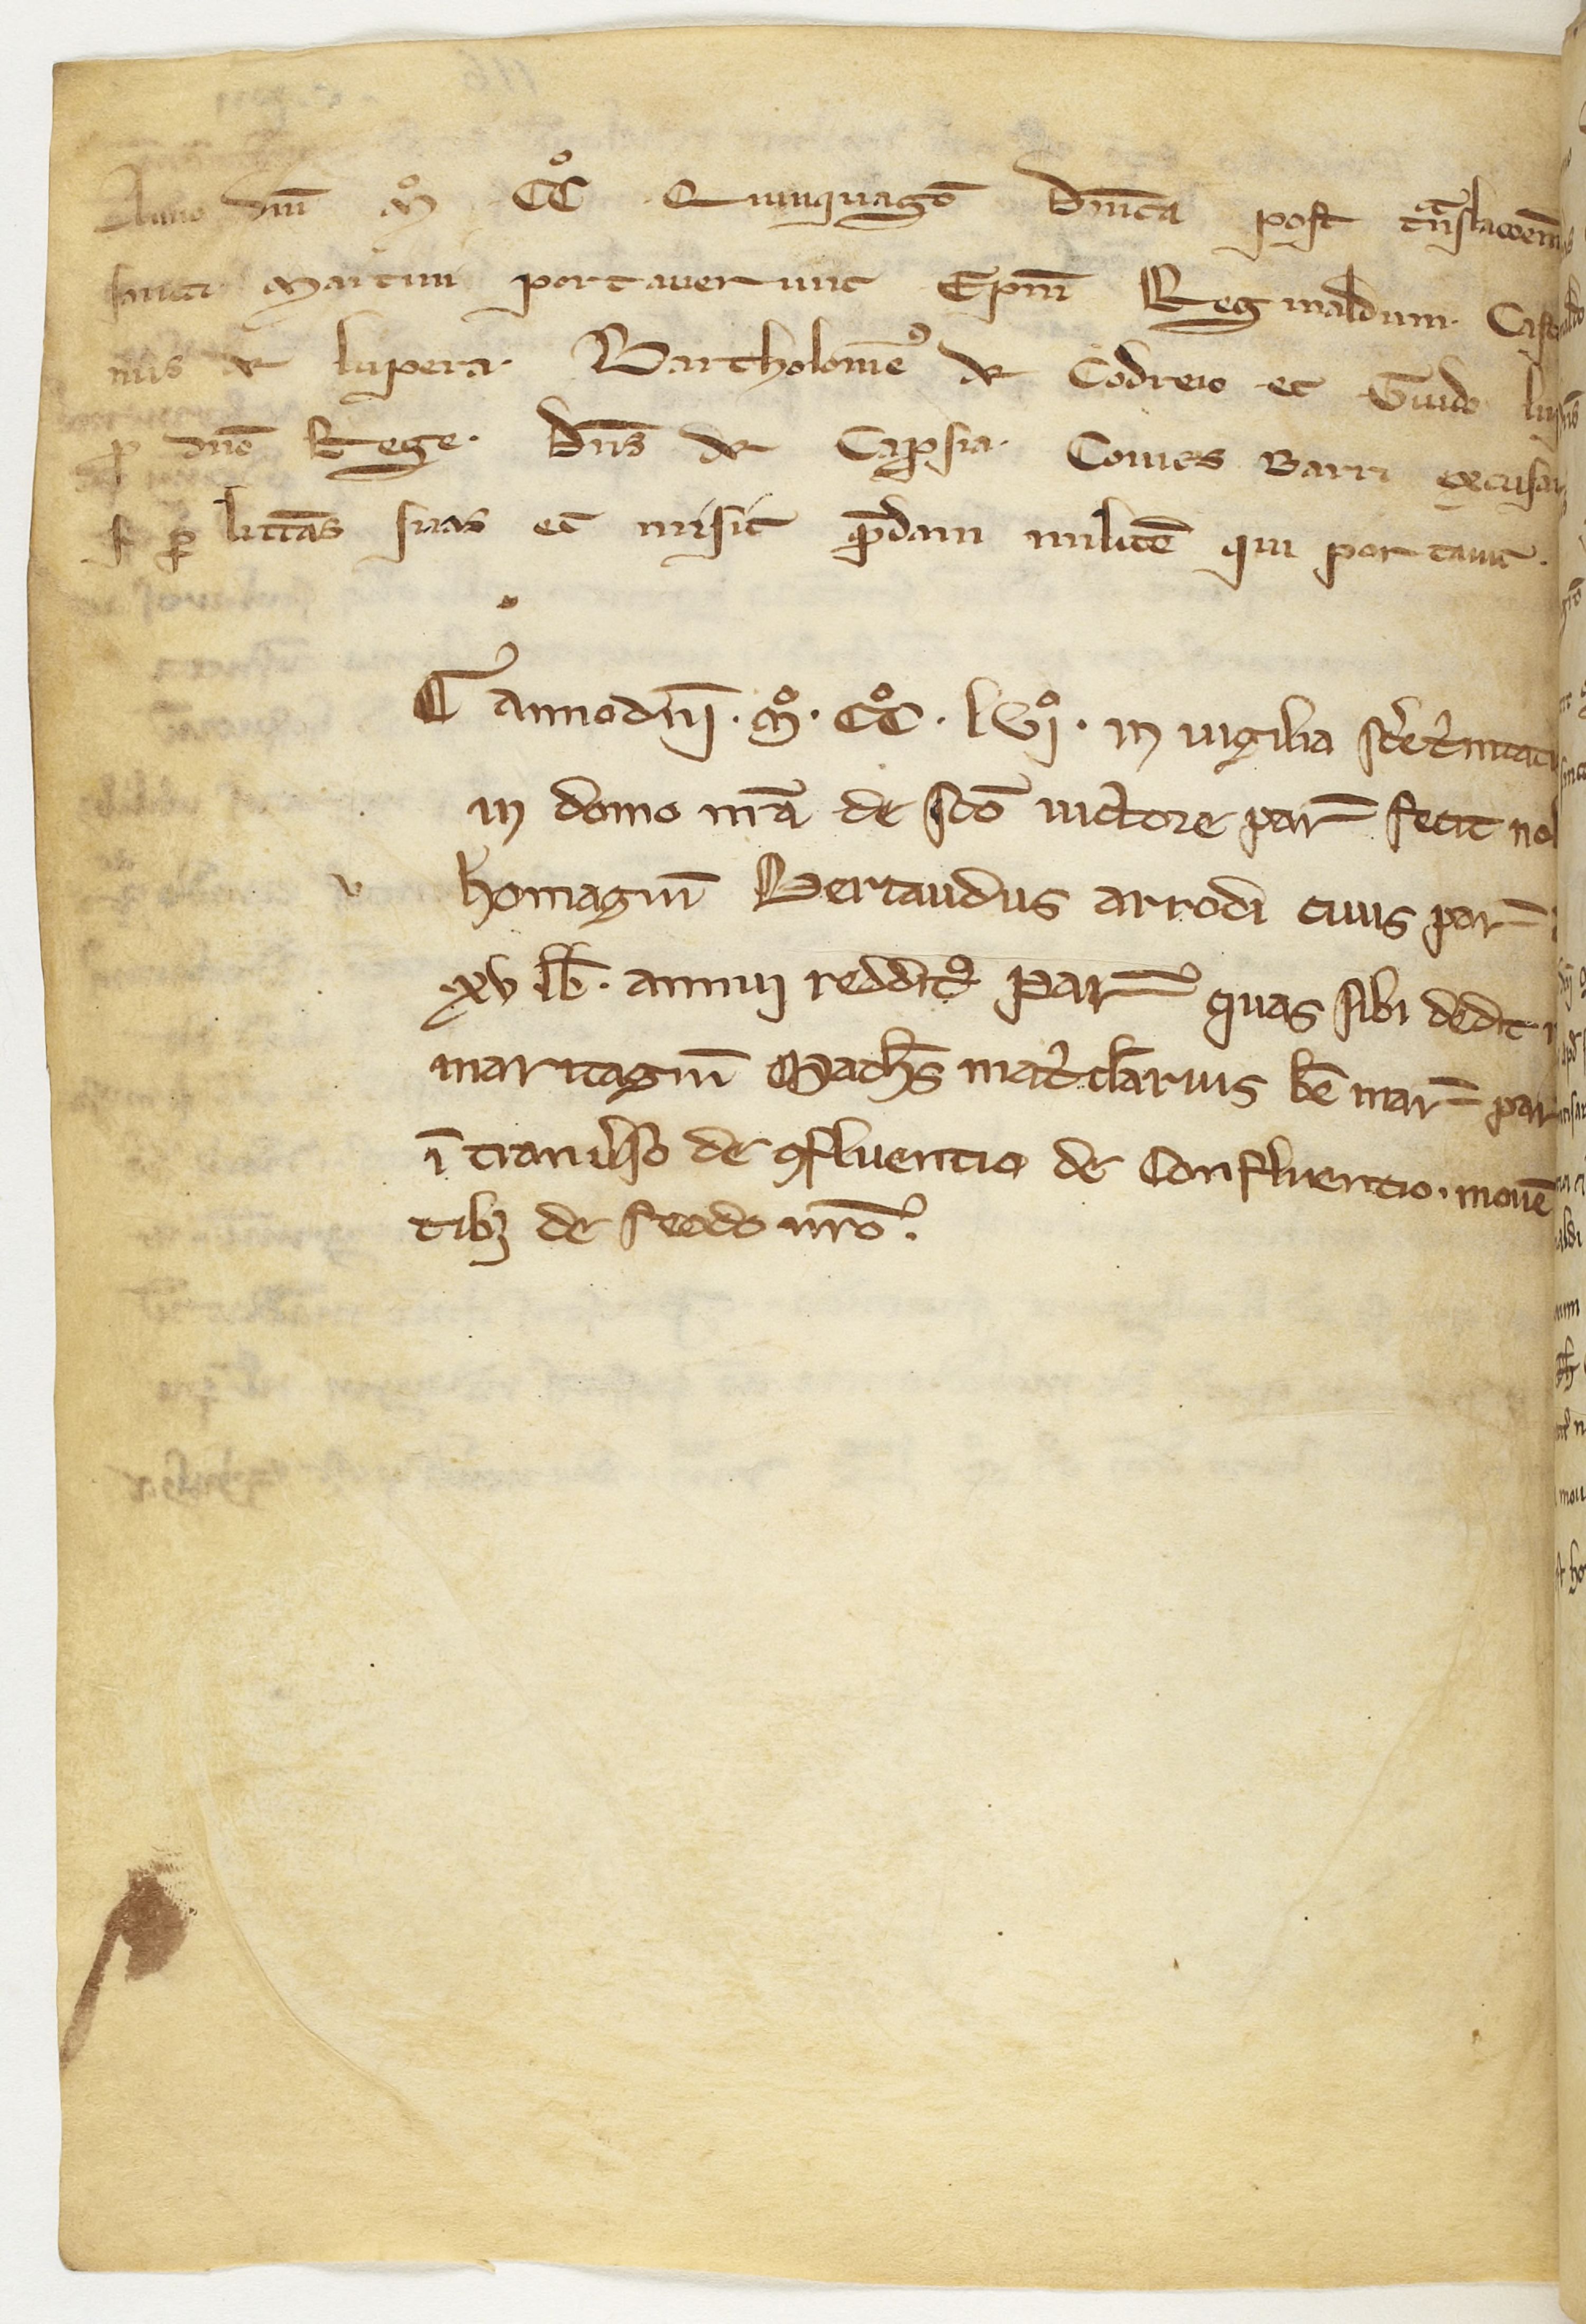 Anno dnī mͦ cͦc Quinquagō dnīca post tᵃnslacoem
sancti Martini portauerunt Epm̄ Reginaldum. Caste
nus de lupera. Bartholomeꝰ de Codreio et Guido lup
ꝓ dno Rege. Dns̄ de Caprosia. Comes Barri excusau
s ꝑ litt̄as suas et misit q̄dam militē qui portauit.
anno dnj̄. mͦ. cͦc. lvjͦ. in vigilia sc̄e t̾nitati
in domo nr̄a de sc̄o victore par̄ fecit nob
homagiū Bertaudus arrodi cuius par̄
xv lb̄. annuj redditꝰ par̄ quas sibi dedit
maritagiū Math̄s mat̾clarius bē mar̄ par
ī trauꝰso de ꝯfluentio de Confluentio. mouē
tibꝫ de feodo nrō.